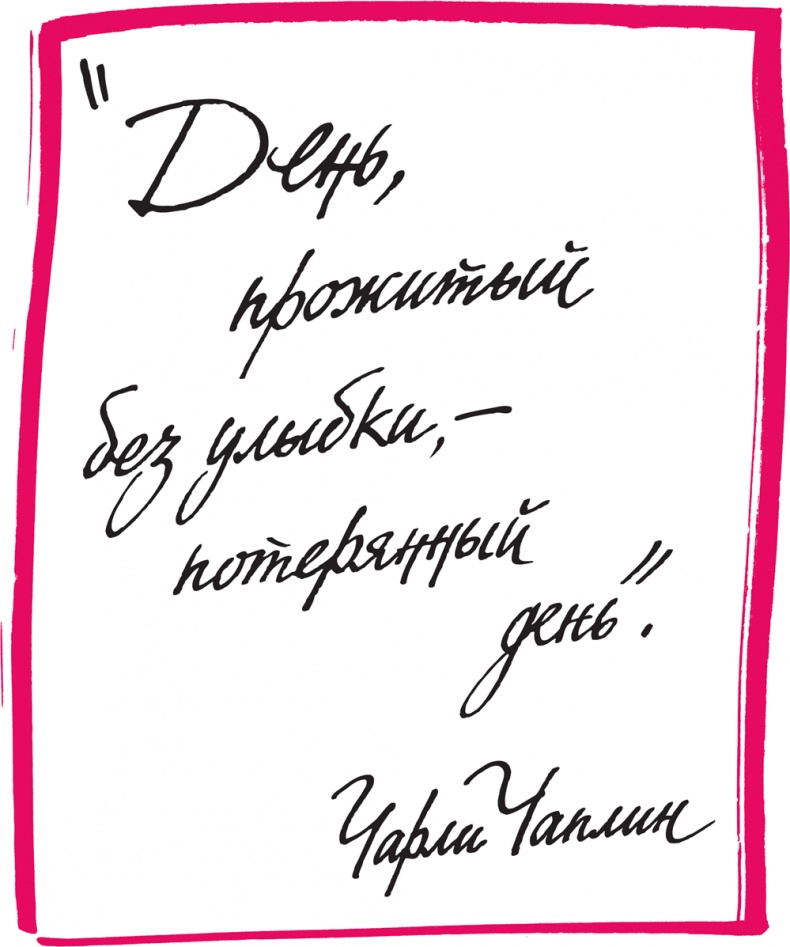 "День,
прожитый
без улыбки,–
потерянный
день".
Чарли Чаплин